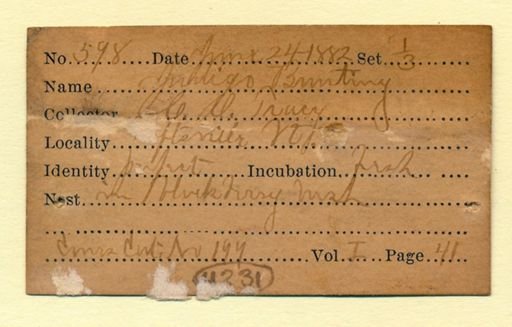 No. 598 Date June 24-1882 Set 1/3
Name Indigo Bunting
Collector Tracy
Locality
Identity perfect Incubation fresh
Nest. in blackberry bush
No 199 Vol. I Page 41
4231